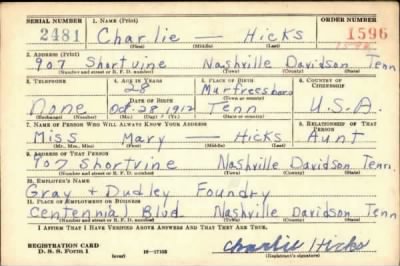 SERIAL NUMBER 1. NAME (Print) ORDER NUMBER
2481 Charlie — Hicks 1596
(First) (Middle) (Last)
2. ADDRESS (Print)
907 Shortvine Nashville Davidson Tenn
(Number and street or R. F. D. number) (Town) (County) (State)
3. TELEPHONE 4. AGE IN YEARS 5. PLACE OF BIRTH 6. COUNTRY OF CITIZENSHIP
28 Murfreesboro
(Town or county)
None DATE OF BIRTH Tenn U.S.A.
Oct. 28 1912
(Exchange) (Number) (Mo.) (Day) (Yr.) (State or country)
7. NAME OF PERSON WHO WILL ALWAYS KNOW YOUR ADDRESS 8. RELATIONSHIP OF THAT PERSON
Miss Mary — Hicks Aunt
(Mr., Mrs., Miss) (First) (Middle) (Last)
9. ADDRESS OF THAT PERSON
907 Shortvine Nashville Davidson Tenn.
(Number and street or R. F. D. number) (Town) (County) (State)
10. EMPLOYER'S NAME
Gray + Dudley Foundry
11. PLACE OF EMPLOYMENT OR BUSINESS
Centennial Blvd Nashville Davidson Tenn
(Number and street or R. F. D. number) (Town) (County) (State)
I AFFIRM THAT I HAVE VERIFIED ABOVE ANSWERS AND THAT THEY ARE TRUE.
REGISTRATION CARD
D. S. S. Form 1 (over) 16—17105 Charlie Hicks
(Registrant's signature)